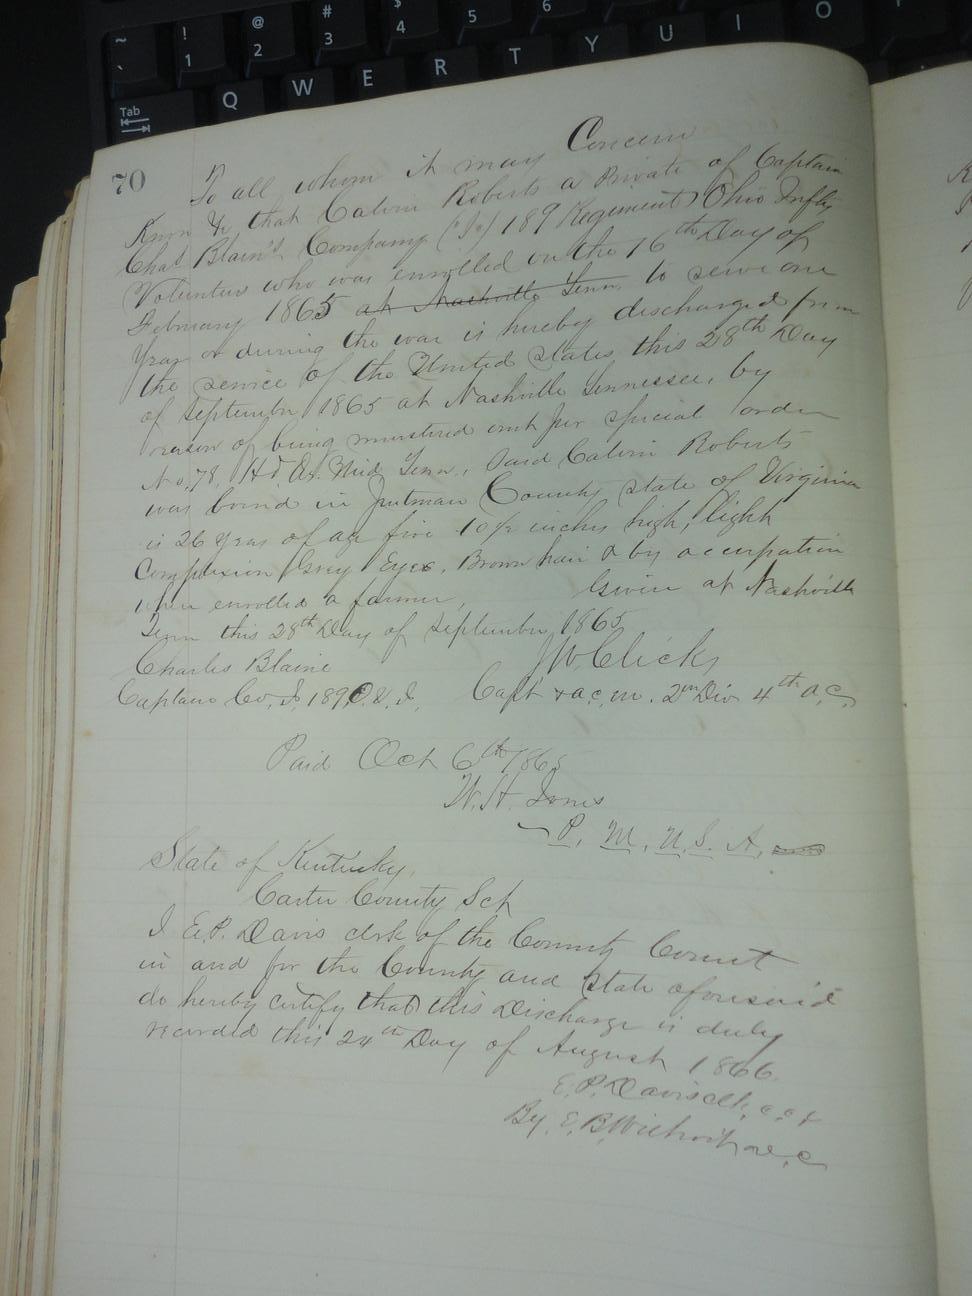 ~ ! @ # $ % ^
` 1 2 3 4 5 6 7 8 9
Tab Q W E R T Y U I O
70
To all whom it may Concern
Know Ye that Calvin Roberts a Private of Captain
Chas Blain's Company ("I") 189 Regiment Ohio Inftry
Volunteers who was enrolled on the 16th Day of
February 1865 at Nashville Tenn to serve one
Year or during the war is hereby discharged from
the service of the United States this 28th Day
of September 1865 at Nashville Tennessee, by
reason of being mustered out per special order
No, 78, Hd Qr. Mid Tenn, Said Calvin Roberts
was bornd in Putman County state of Virginia
is 26 Years of age five 10 1/2 inches high, light
Complexion Grey Eyes, Brown hair & by occupation
when enrolled a farmer, Given at Nashville
Tenn this 28th Day of September 1865
Charles Blaine J W. Clicks
Captain Co, I, 189, O. V. I. Capt & a. c. m. 2nd Div 4th A. C.
Paid Oct 6th 1865
W. H. Jones
P. M. U. S. A.
State of Kentucky,
Carter County Sct
I E. P. Davis clerk of the County Court
in and for the County and State aforesaid
do hereby certify that this Discharge is duly
recorded this 24th Day of August 1866.
E. P. Davis clk, c. c. c
By, E. B. D. C